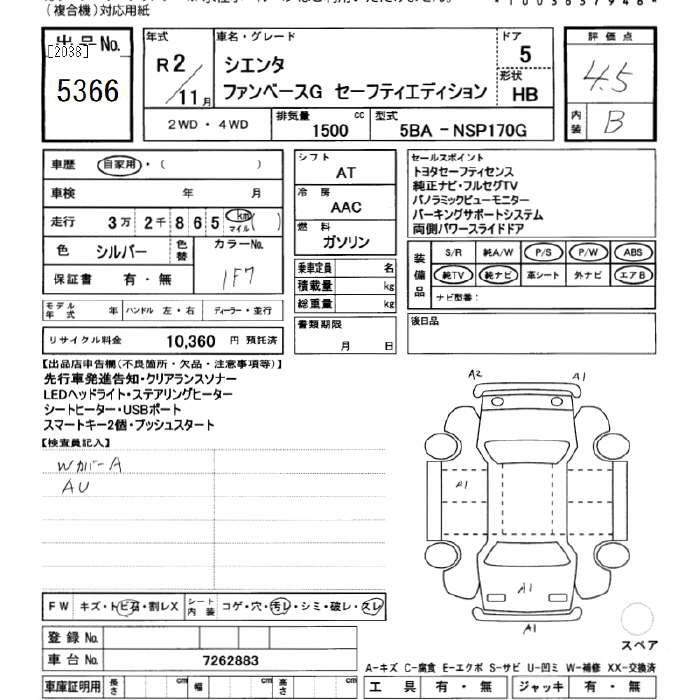 （複合機）対応用紙
出品No.
[2038]
5366
年式
R2/11月
車名・グレード
シエンタ
ファンベースG セーフティエディション
ドア
5
形状
HB
評価点
4.5
内装
B
2WD・4WD
排気量
1500 cc
型式
5BA－NSP170G
車歴 自家用・（ ）
車検 年 月
走行 3万2千865 km マイル（ ）
色 シルバー 色替 カラーNo. 1F7
保証書 有・無
モデル年式 年 ハンドル 左・右 ディーラー・並行
リサイクル料金 10,360 円 預託済
シフト
AT
冷房
AAC
燃料
ガソリン
乗車定員 名
積載量 kg
総重量 kg
書類期限
月 日
セールスポイント
トヨタセーフティセンス
純正ナビ・フルセグTV
パノラミックビューモニター
パーキングサポートシステム
両側パワースライドドア
装備品
S/R 純A/W P/S P/W ABS
純TV 純ナビ 革シート 外ナビ エアB
ナビ型番：
後日品
【出品店申告欄（不良箇所・欠品・注意事項等）】
先行車発進告知・クリアランスソナー
LEDヘッドライト・ステアリングヒーター
シートヒーター・USBポート
スマートキー2個・プッシュスタート
【検査員記入】
WカバーA
AU
A2 A1
A1
A1
A1
スペア
FW キズ・トビ石・割レX シート内装 コゲ・穴・汚レ・シミ・破レ・スレ
登録No.
車台No. 7262883
車庫証明用 長さ cm 幅 cm 高さ cm
A－キズ C－腐食 E－エクボ S－サビ U－凹ミ W－補修 XX－交換済
工具 有・無 ジャッキ 有・無